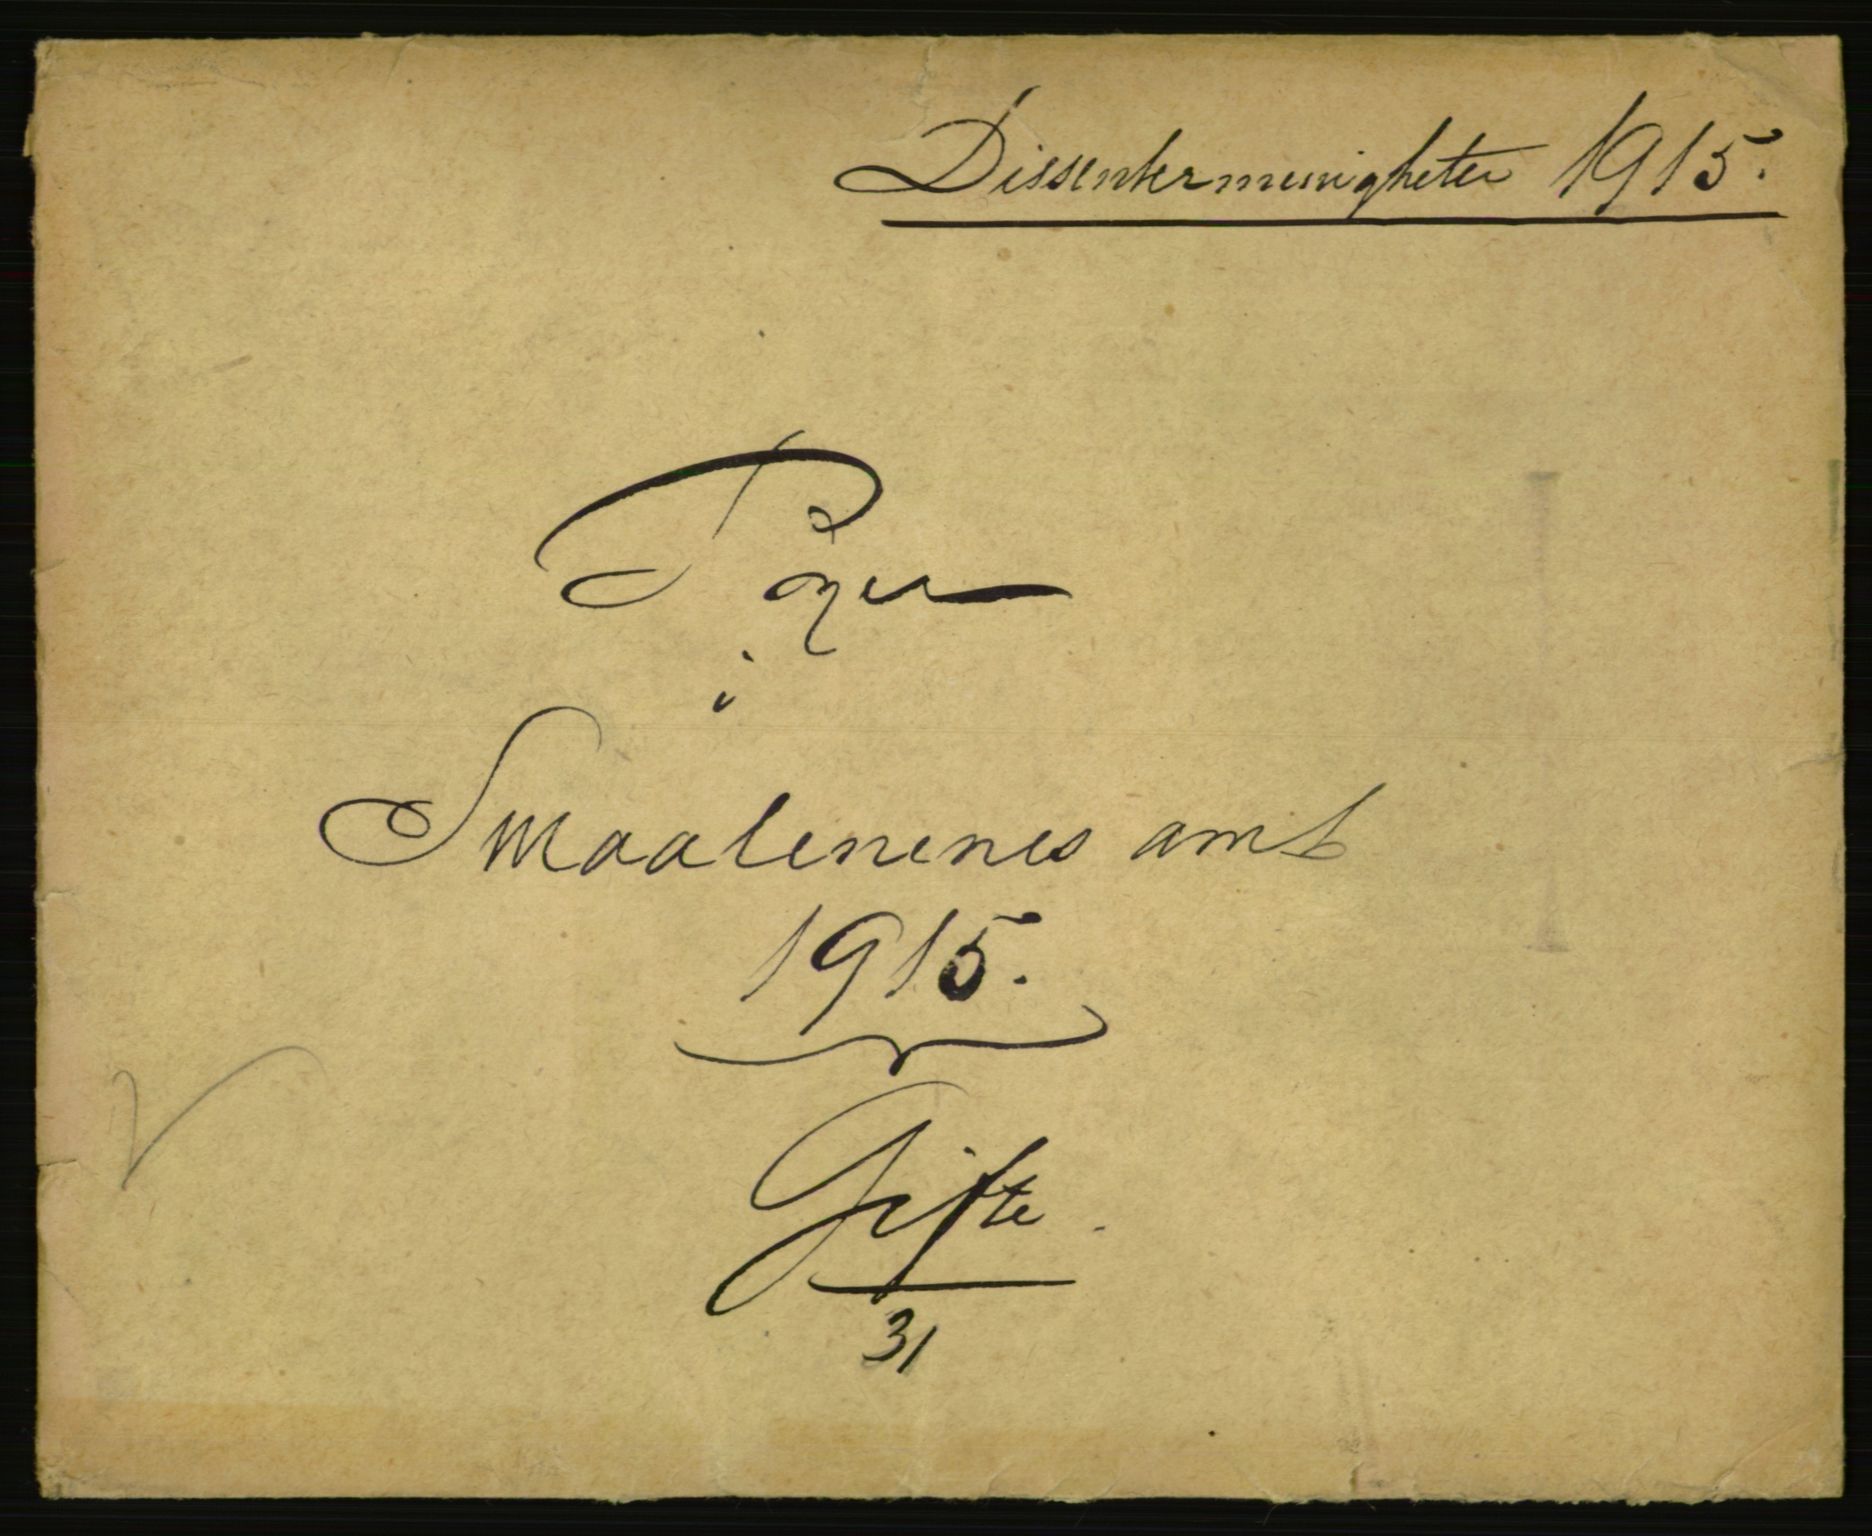 Dissentermenigheter 1915.
Byer
i
Smaalenenes amt
1915.
Gifte.
31